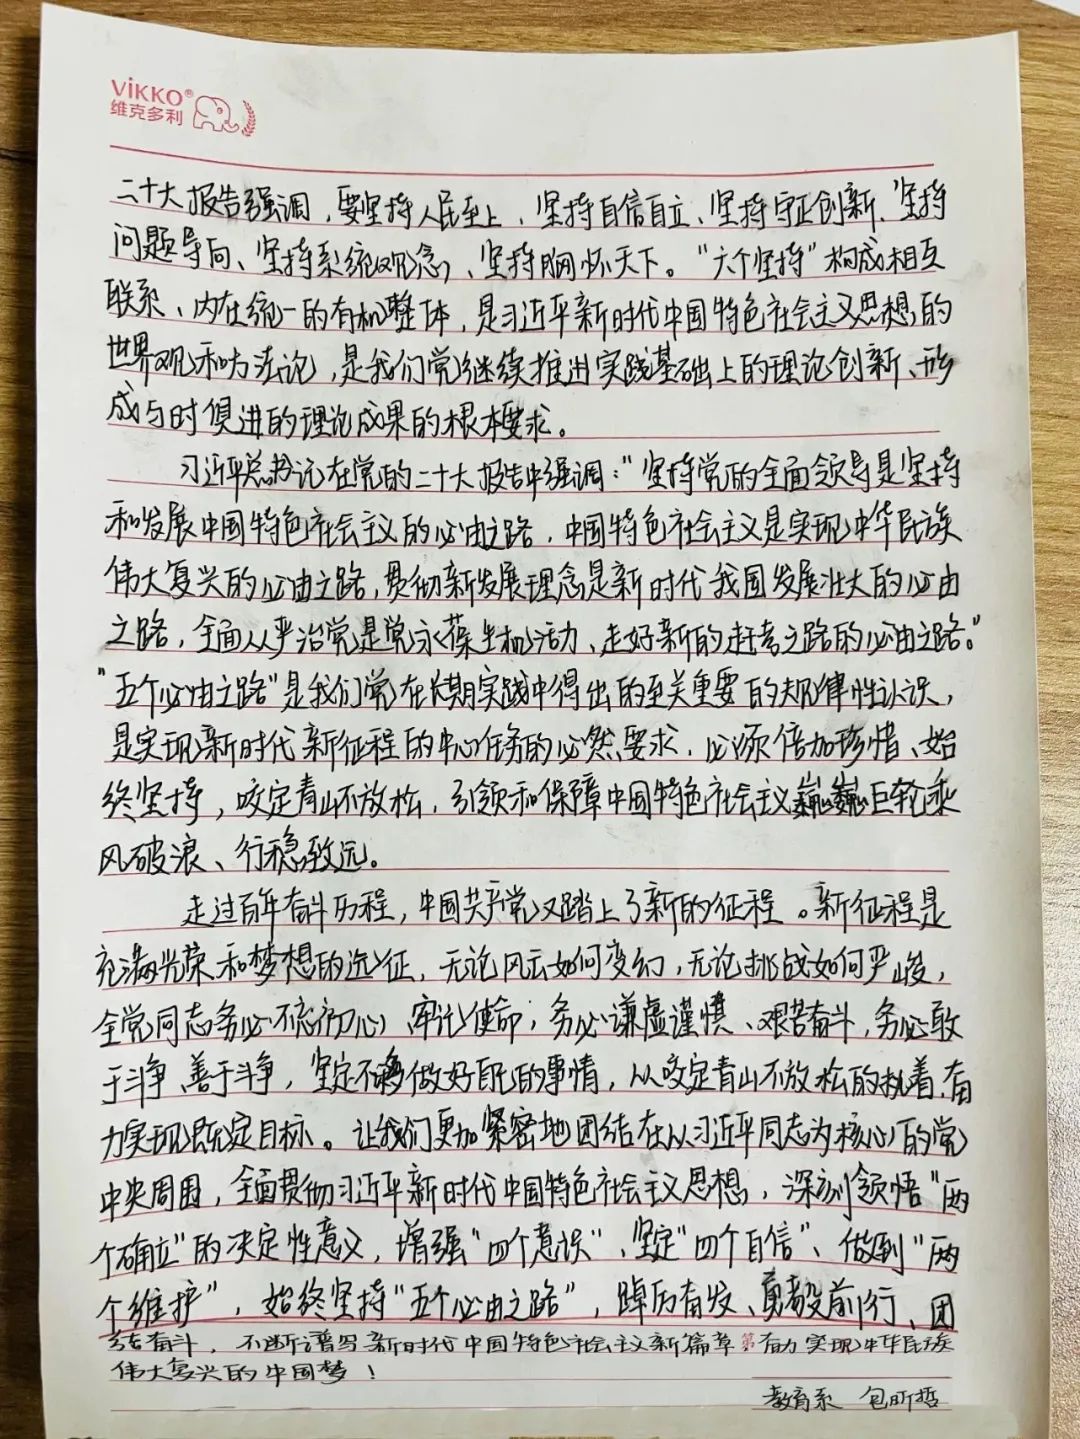 ViKKO®
维克多利
二十大报告强调，要坚持人民至上、坚持自信自立、坚持守正创新、坚持
问题导向、坚持系统观念、坚持胸怀天下。“六个坚持”构成相互
联系、内在统一的有机整体，是习近平新时代中国特色社会主义思想的
世界观和方法论，是我们党继续推进实践基础上的理论创新、形
成与时俱进的理论成果的根本要求。
习近平总书记在党的二十大报告中强调：“坚持党的全面领导是坚持
和发展中国特色社会主义的必由之路，中国特色社会主义是实现中华民族
伟大复兴的必由之路，贯彻新发展理念是新时代我国发展壮大的必由
之路，全面从严治党是党永葆生机活力、走好新的赶考之路的必由之路。”
“五个必由之路”是我们党在长期实践中得出的至关重要的规律性认识，
是实现新时代新征程的中心任务的必然要求，必须倍加珍惜、始
终坚持，咬定青山不放松，引领和保障中国特色社会主义巍巍巨轮乘
风破浪、行稳致远。
走过百年奋斗历程，中国共产党又踏上了新的征程。新征程是
充满光荣和梦想的远征，无论风云如何变幻，无论挑战如何严峻，
全党同志务必不忘初心、牢记使命，务必谦虚谨慎、艰苦奋斗，务必敢
于斗争、善于斗争，坚定不移做好自己的事情，从咬定青山不放松的执着，奋
力实现既定目标。让我们更加紧密地团结在以习近平同志为核心的党
中央周围，全面贯彻习近平新时代中国特色社会主义思想，深刻领悟“两
个确立”的决定性意义，增强“四个意识”、坚定“四个自信”、做到“两
个维护”，始终坚持“五个必由之路”，踔厉奋发、勇毅前行、团
结奋斗，不断谱写新时代中国特色社会主义新篇章，奋力实现中华民族
伟大复兴的中国梦！
教育系 包昕哲